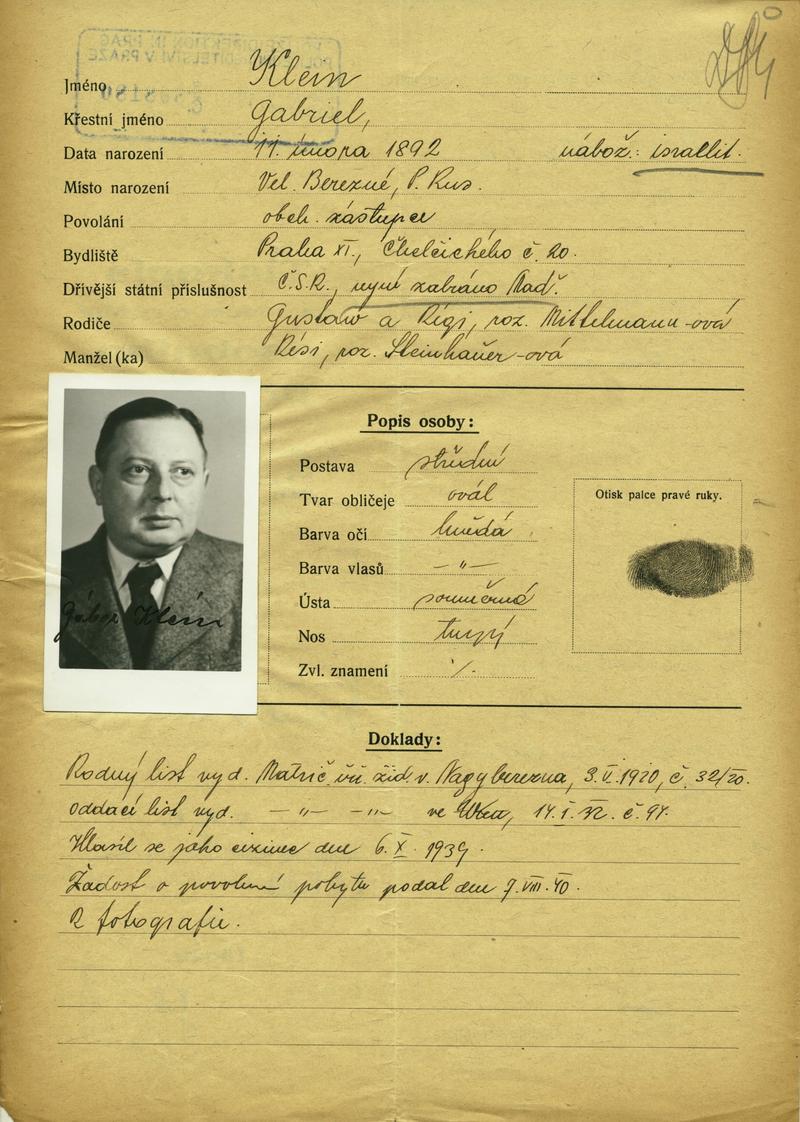 Jméno Klein
Křestní jméno Gabriel,
Data narození 11. února 1892 nábož.: israelit.
Místo narození Vel. Berezné, P. Rus.
Povolání obch. zástupce
Bydliště Praha XI., Chelčického č. 20.
Dřívější státní příslušnost Č.S.R., nyní zabráno Maď.
Rodiče Gustaw a Régi, roz. Mittelmann-ová
Manžel (ka) Rési, roz. Steinhauer-ová
Popis osoby:
Postava střední
Tvar obličeje ovál
Barva očí hnědá
Barva vlasů — „ —
Ústa souměrná
Nos tupý
Zvl. znamení ·/.
Otisk palce pravé ruky.
Gábor Klein
Doklady:
Rodný list vyd. Matrič. úř. žid. v Nagyberezna, 3.V.1920, č. 32/20.
Oddací list vyd. — „ — — „ — ve 14.I.22. č. 94.
Hlásil se jako cizinec dne 6.X. 1939.
Žádost o povolení pobytu podal dne 7.VIII.40.
2 fotografie.